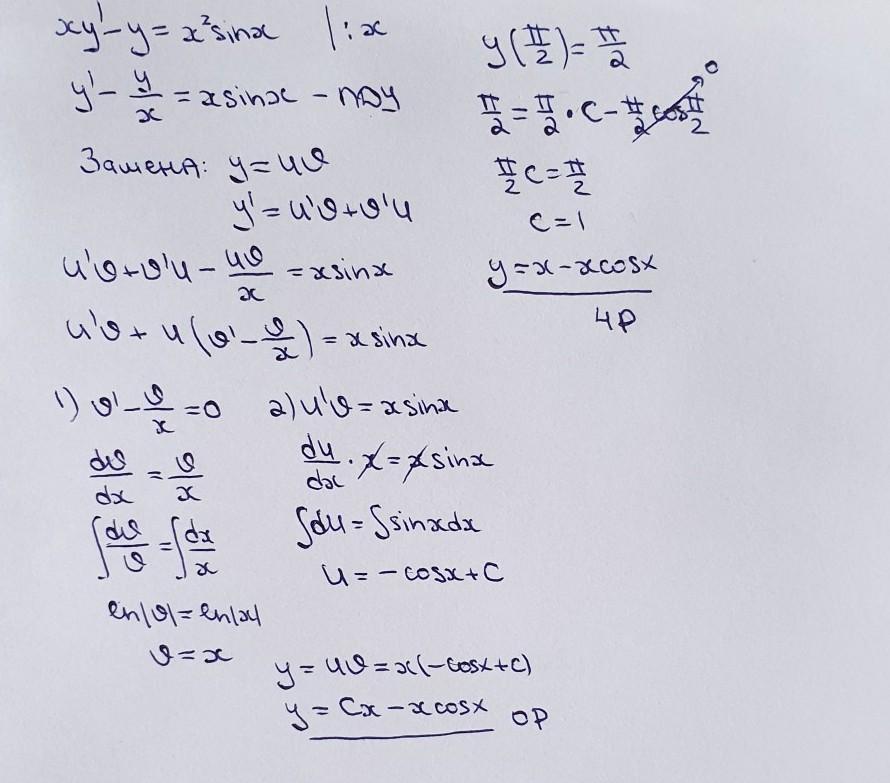 xy' - y = x² sinx |: x
y' - y/x = x sinx - ЛДУ
Замена: y = uv
y' = u'v + v'u
u'v + v'u - uv/x = x sinx
u'v + u(v' - v/x) = x sinx
1) v' - v/x = 0
dv/dx = v/x
∫dv/v = ∫dx/x
ln|v| = ln|x|
v = x
2) u'v = x sinx
du/dx · x = x sinx
∫du = ∫sinxdx
u = -cosx + C
y = uv = x(-cosx + C)
y = Cx - x cosx ОР
y(π/2) = π/2
π/2 = π/2 · C - π/2 cos π/2 0
π/2 C = π/2
C = 1
y = x - x cosx
ЧР